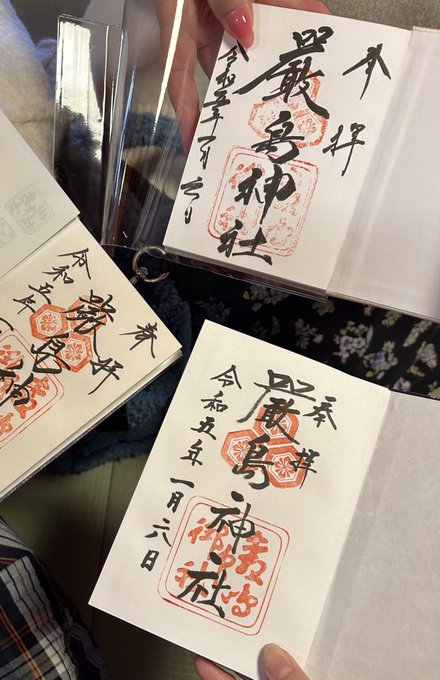 奉拝
嚴島神社
令和五年一月六日
奉拝
嚴島神
令和五年
奉拝
嚴島神社
令和五年一月六日